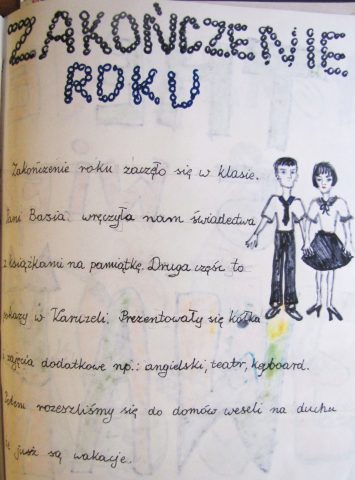 ZAKOŃCZENIE
ROKU
Zakończenie roku zaczęło się w klasie.
Pani Basia wręczyła nam świadectwa
z książkami na pamiątkę. Druga częśc to
pokazy w Karczeli. Prezentowały się kółka
i zajęcia dodatkowe np.: angielski, teatr, keyboard.
Potem rozeszliśmy się do domów weseli na duchu
że już są wakacje.